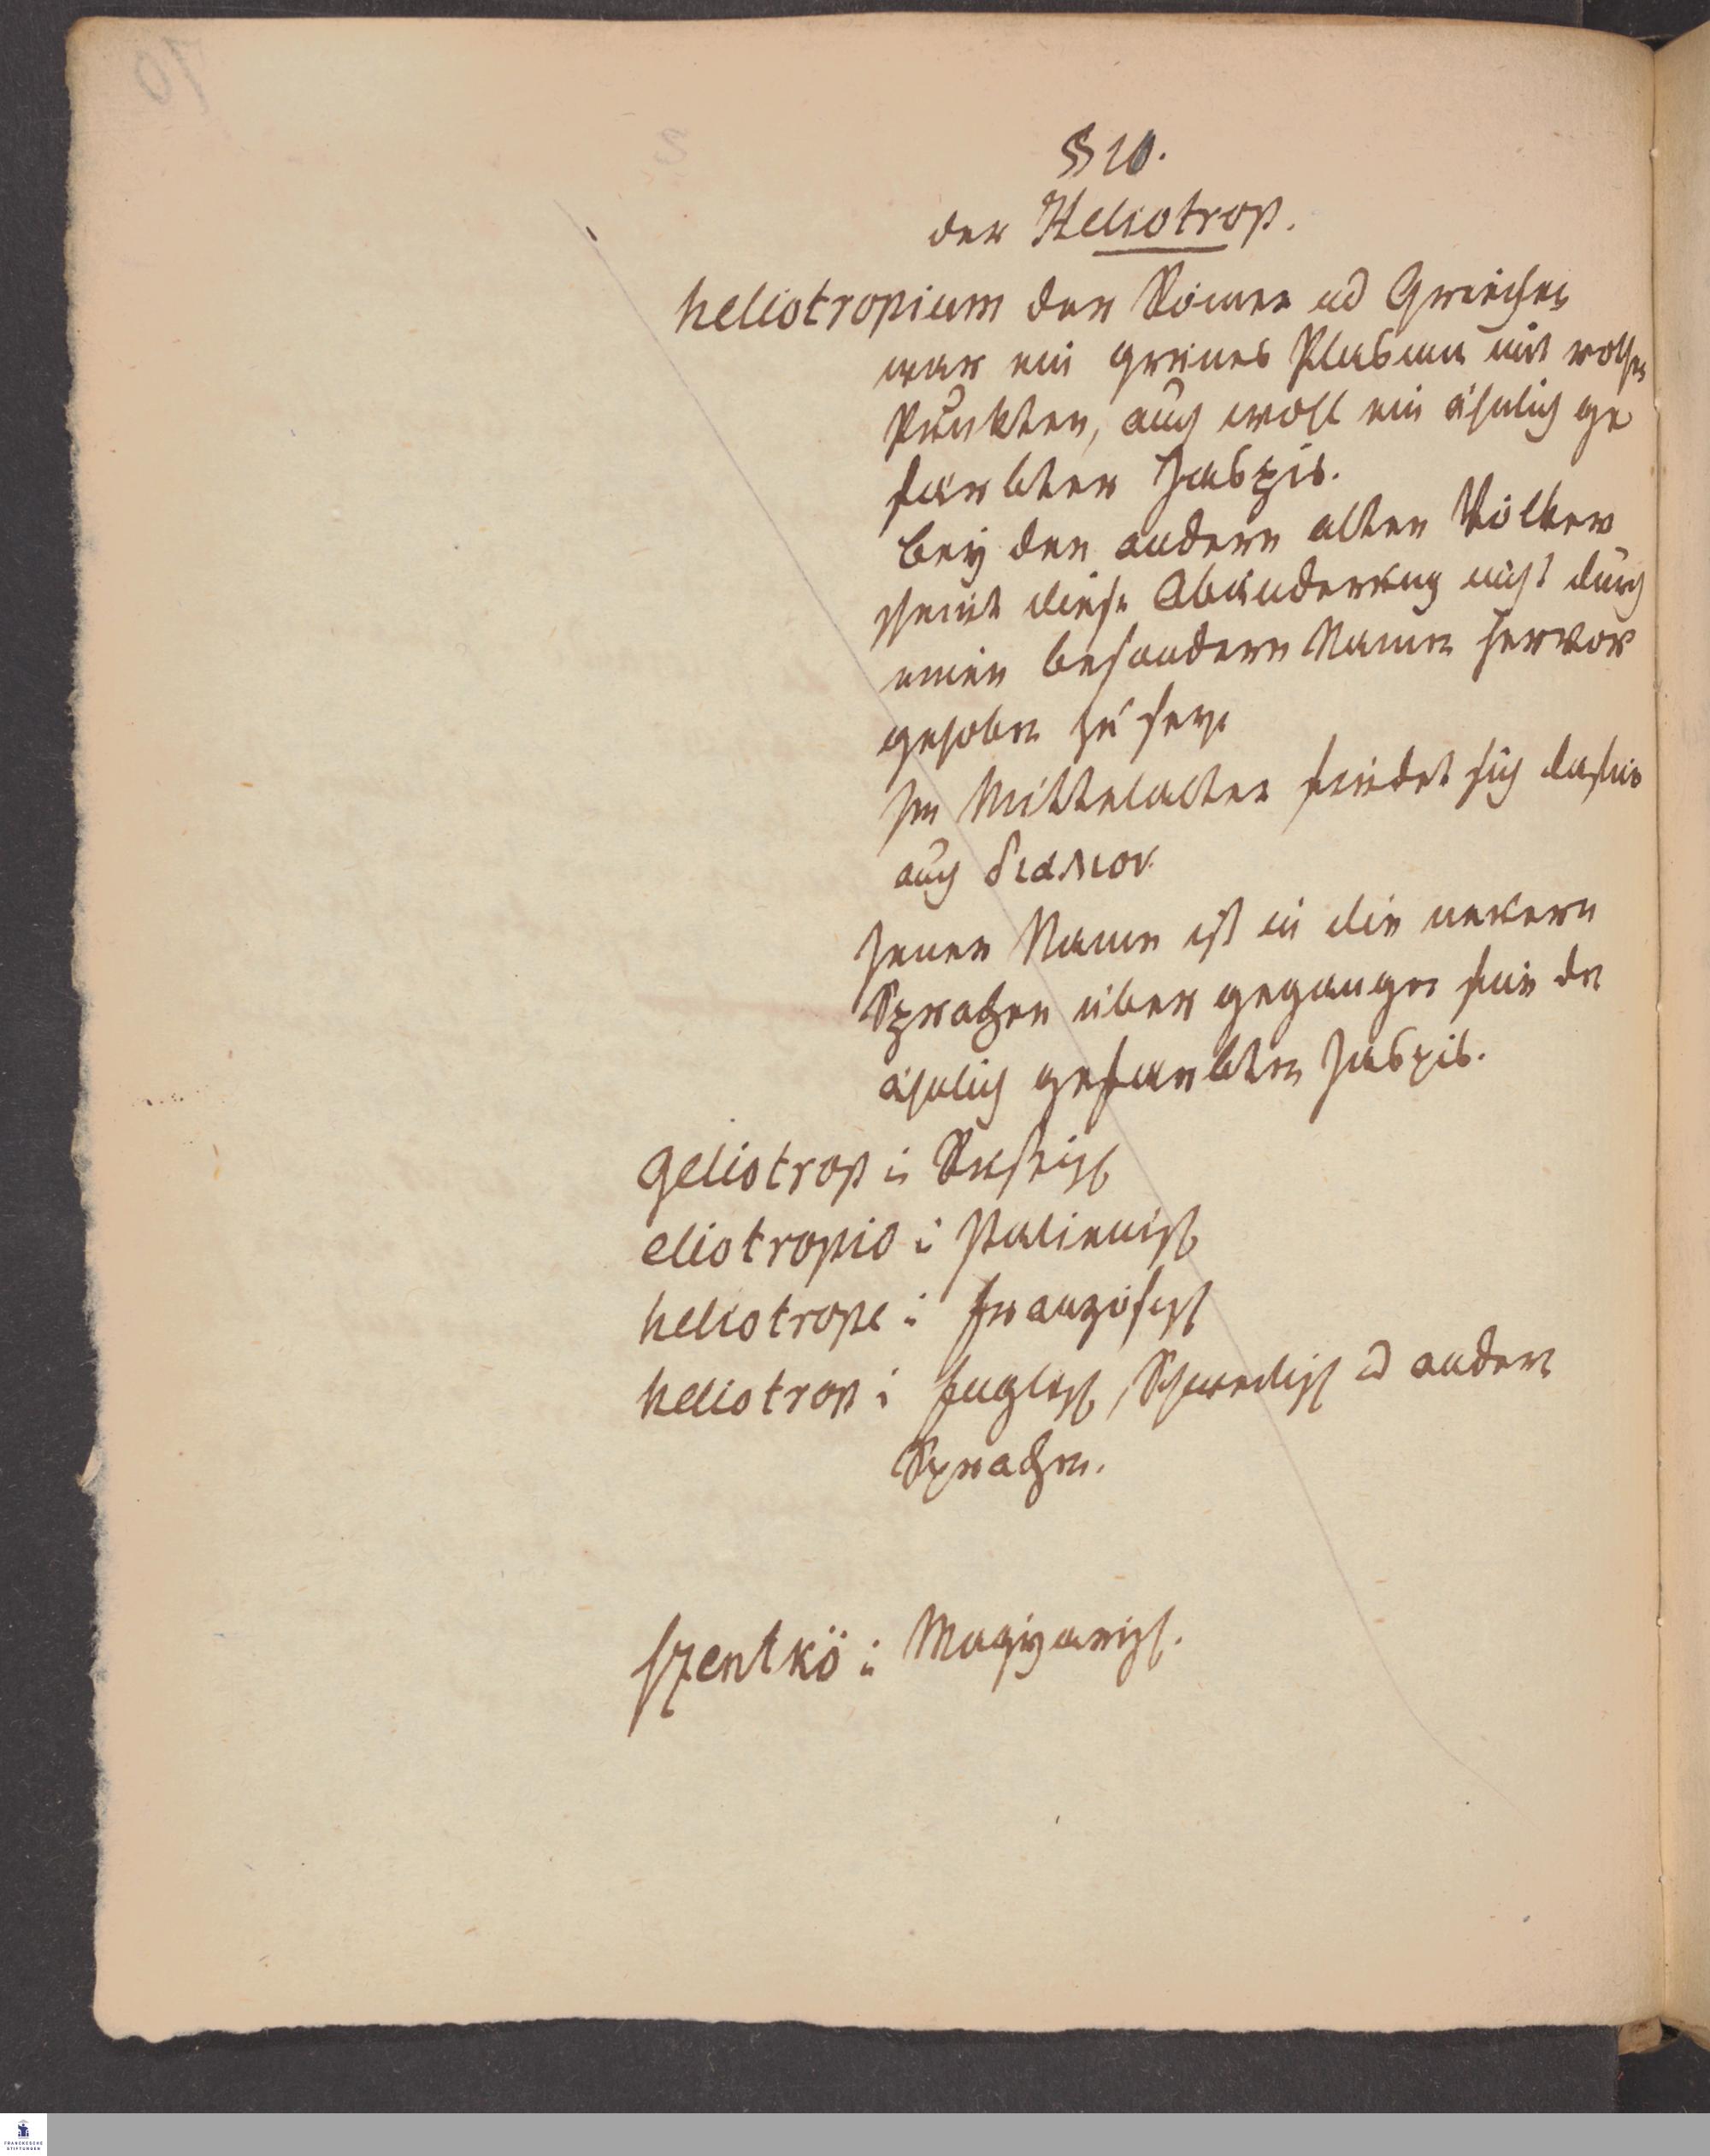 § 10.
der Heliotrop.
heliotropium der Römer ud Griechen
war ein grünes Plasma mit rothen
Punkten, auch wohl ein ähnlich ge
färbter Jaspis.
bey den andern alten Völker
scheint diese Abänderung nicht durch
einen besondern Namen hervor
gehoben zu seyn
Im Mittelalter findet sich dafür
auch
Jener Name ist in die neuern
Sprachen über gegangen für den
ähnlich gefärbten Jaspis.
geliotrop in Russisch
eliotropio i Italienisch
heliotrope i französisch
heliotrop i Englisch, Schwedisch ud andern
Sprachen.
szentkö in Magyarisch.
FRANCKESCHE
STIFTUNGEN